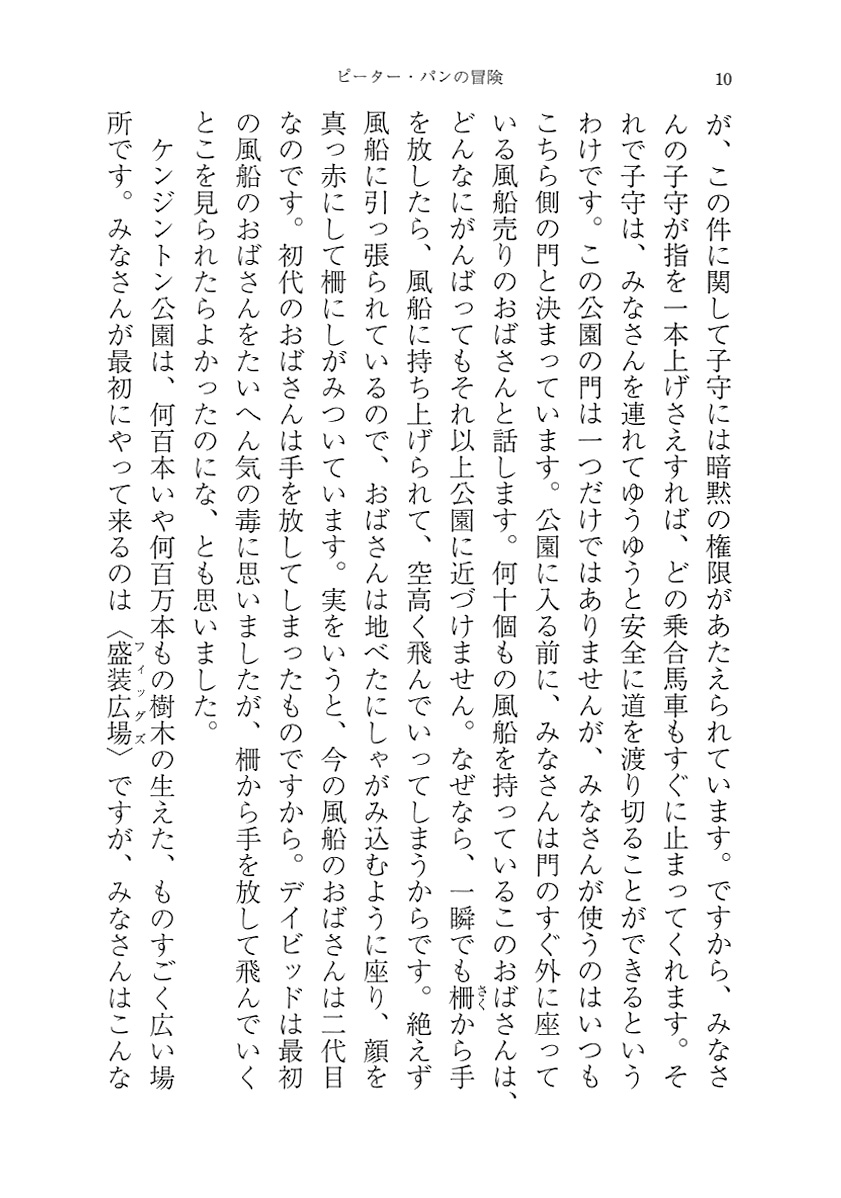 ピーター・パンの冒険
10
が、この件に関して子守には暗黙の権限があたえられています。ですから、みなさ
んの子守が指を一本上げさえすれば、どの乗合馬車もすぐに止まってくれます。そ
れで子守は、みなさんを連れてゆうゆうと安全に道を渡り切ることができるという
わけです。この公園の門は一つだけではありませんが、みなさんが使うのはいつも
こちら側の門と決まっています。公園に入る前に、みなさんは門のすぐ外に座って
いる風船売りのおばさんと話します。何十個もの風船を持っているこのおばさんは、
どんなにがんばってもそれ以上公園に近づけません。なぜなら、一瞬でも柵から手
さく
を放したら、風船に持ち上げられて、空高く飛んでいってしまうからです。絶えず
風船に引っ張られているので、おばさんは地べたにしゃがみ込むように座り、顔を
真っ赤にして柵にしがみついています。実をいうと、今の風船のおばさんは二代目
なのです。初代のおばさんは手を放してしまったものですから。デイビッドは最初
の風船のおばさんをたいへん気の毒に思いましたが、柵から手を放して飛んでいく
とこを見られたらよかったのにな、とも思いました。
ケンジントン公園は、何百本いや何百万本もの樹木の生えた、ものすごく広い場
所です。みなさんが最初にやって来るのは〈盛装広場〉ですが、みなさんはこんな
フィッグズ